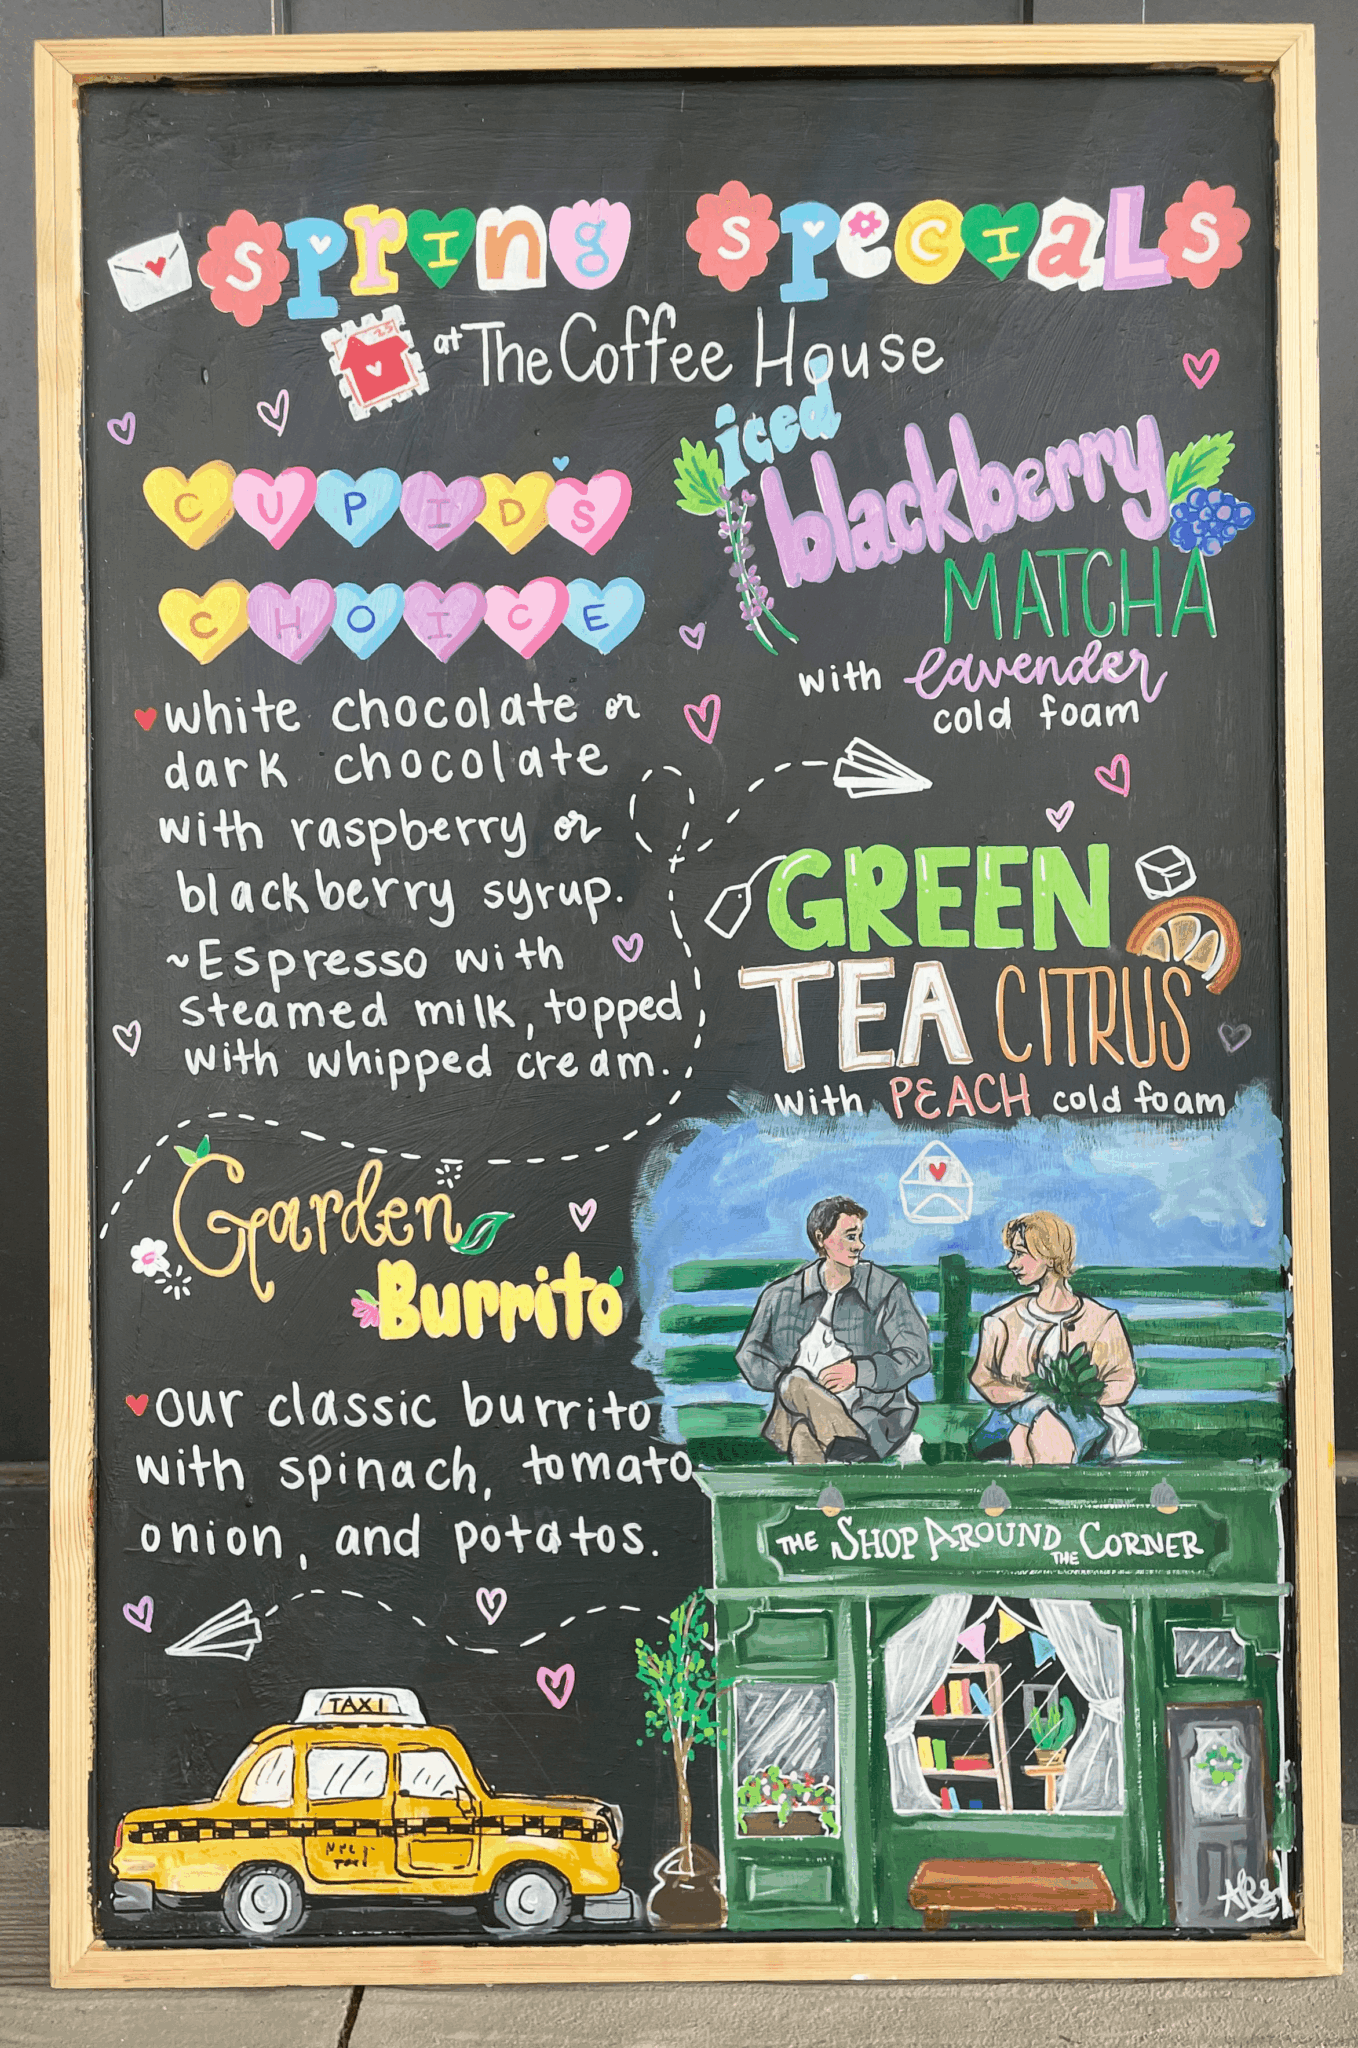 SPRING SPECIALS
at The Coffee House
CUPID'S
CHOICE
white chocolate or
dark chocolate
with raspberry or
blackberry syrup.
~Espresso with
steamed milk, topped
with whipped cream.
iced
blackberry
MATCHA
with lavender
cold foam
GREEN
TEA CITRUS
with PEACH cold foam
Garden
Burrito
our classic burrito
with spinach, tomato
onion, and potatos.
THE SHOP AROUND THE CORNER
TAXI